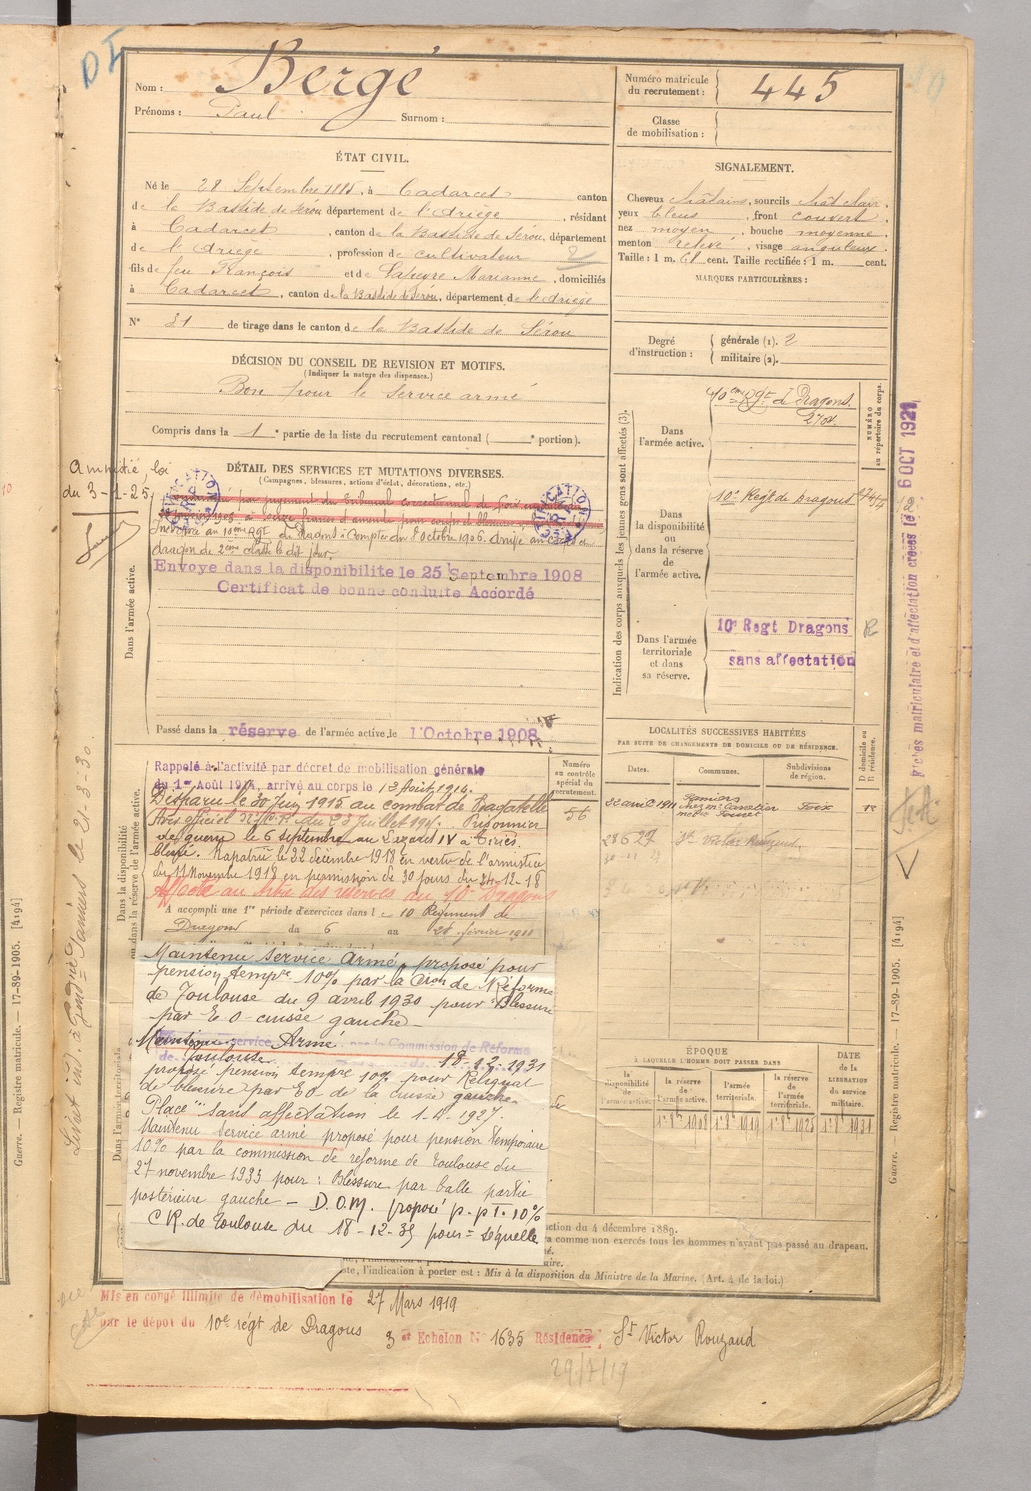 DI
Nom : Bergé
Prénoms : Paul Surnom :
Numéro matricule du recrutement : 445
Classe de mobilisation :
ÉTAT CIVIL.
Né le 28 Septembre 1885, à Cadarcet canton
de la Bastide de Sérou département de l'Ariège, résidant
à Cadarcet, canton de la Bastide de Sérou, département
de l'Ariège, profession de cultivateur
fils de feu François et de Marianne, domiciliés
à Cadarcet, canton de la Bastide de Sérou, département de l'Ariège
N° 31 de tirage dans le canton de la Bastide de Sérou
SIGNALEMENT.
Cheveux châtains, sourcils chât clair,
yeux bleus, front couvert,
nez moyen, bouche moyenne,
menton relevé, visage anguleux.
Taille : 1 m. 61 cent. Taille rectifiée : 1 m. cent.
MARQUES PARTICULIÈRES :
Degré d'instruction : générale (1). 2
militaire (2).
DÉCISION DU CONSEIL DE REVISION ET MOTIFS.
(Indiquer la nature des dispenses.)
Bon pour le Service armé
Compris dans la 1e partie de la liste du recrutement cantonal ( e portion).
DÉTAIL DES SERVICES ET MUTATIONS DIVERSES.
(Campagnes, blessures, actions d'éclat, décorations, etc.)
Amnistié loi
du 3-1-25
par jugement du Tribunal correctionnel de Foix
à seize francs d'amende pour coups et blessures
Incorporé au 10eme Rgt de Dragons à Compter du 8 Octobre 1906. Arrivé au corps et
dragon de 2eme classe le dit jour.
Envoyé dans la disponibilite le 25 Septembre 1908
Certificat de bonne conduite Accordé
Dans l'armée active.
Passé dans la réserve de l'armée active le 1 Octobre 1908
Indication des corps auxquels les jeunes gens sont affectés (3).
NUMÉRO au répertoire du corps.
Dans l'armée active.
10eme Rgt de Dragons.
2701
Dans la disponibilité ou dans la réserve de l'armée active.
10e Regt de Dragons
Dans l'armée territoriale et dans sa réserve.
10e Regt Dragons R
sans affectation
Fiches matriculaire et d'affectation créées le 6 OCT 1921
Dans la disponibilité ou dans la réserve de l'armée active.
Rappelé à l'activité par décret de mobilisation générale
du 1er Août 1914, arrivé au corps le 3 Août 1914.
Disparu le 30 Juin 1915 au combat de Bagatelle
Avis officiel du 23 Juillet 1915. Prisonnier
de guerre le 6 septembre
blessé. Rapatrié le 22 décembre 1918 en vertu de l'armistice
du 11 Novembre 1918 en permission de 30 jours du 24-12-18
Affecté au des réserves du 10e Dragons
A accompli une 1re période d'exercices dans le 10 Régiment de
Dragons du 6 au 28 février 1911
Numéro au contrôle spécial du recrutement.
56
LOCALITÉS SUCCESSIVES HABITÉES
PAR SUITE DE CHANGEMENTS DE DOMICILE OU DE RÉSIDENCE.
Dates. Communes. Subdivisions de région. D domicile ou R résidence.
30 avril 1911 Pamiers Foix R
28 6 27 St Victor Rouzaud
Maintenu Service Armé, proposé pour
pension tempre 10% par la Cion de Réforme
de Toulouse du 9 avril 1930 pour Blessure
par E O cuisse gauche
Maintenu service Armé par la Commission de Réforme
de Toulouse 12-1931
proposé pension tempre 10% pour Reliquat
de blessure par EO de la cuisse gauche
Placé "sans affectation le 1-11-1927.
Maintenu Service armé proposé pour pension Temporaire
10% par la commission de réforme de Toulouse du
27 novembre 1933 pour : Blessure par balle partie
postérieure gauche — D.O.M. proposé p. 10%
C.R. de Toulouse du 18-12-35 pour = séquelle
ÉPOQUE
À LAQUELLE L'HOMME DOIT PASSER DANS
la disponibilité de l'armée active. la réserve de l'armée active. l'armée territoriale. la réserve de l'armée territoriale.
DATE de la LIBÉRATION du service militaire.
1er 8bre 1908 1er 8bre 1919 1er 8bre 1925 1er 8bre 1931
ction du 4 décembre 1889.
ra comme non exercés tous les hommes n'ayant pas passé au drapeau.
ste, l'indication à porter est : Mis à la disposition du Ministre de la Marine. (Art. 4 de la loi.)
Mis en congé illimité de démobilisation le 27 Mars 1919
par le dépot du 10e régt de Dragons 3 e Echelon N° 1635 Résidence : St Victor Rouzaud
29/7/19
Livret ind. à Gendrie Pamiers le 21-3-30.
Guerre. — Registre matricule. — 17-89-1905. [4194]
Guerre. — Registre matricule. — 17-89-1905. [4194]